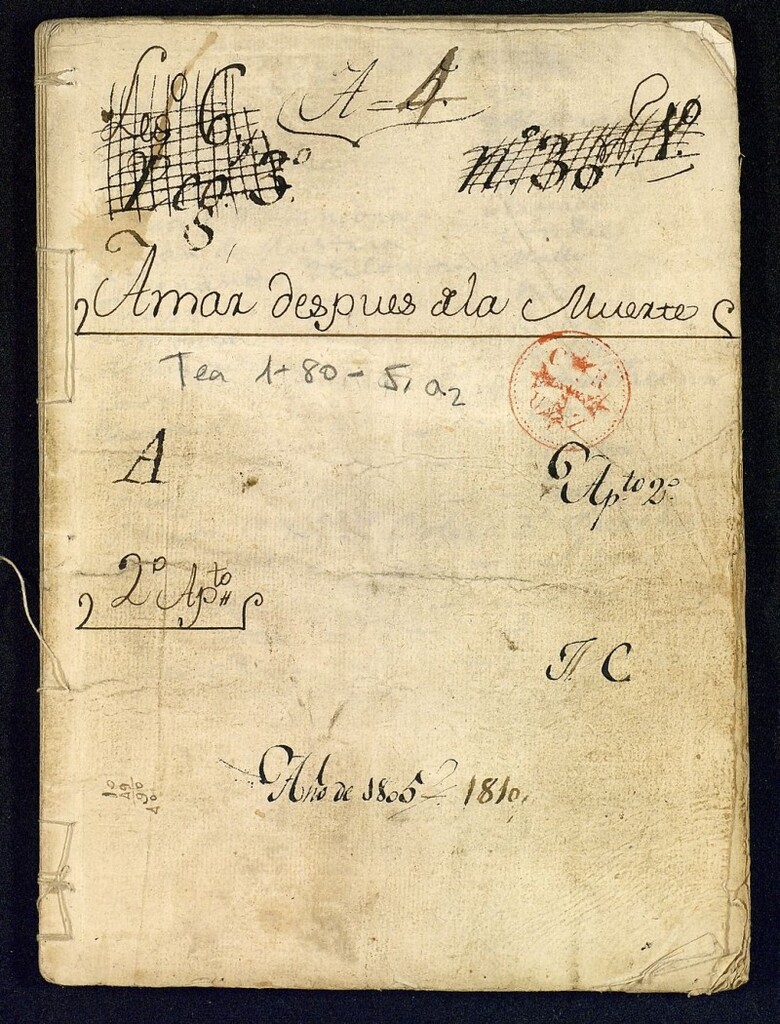 Leg.º 6.
A = 4.
n.º 30
Leg.º 3.º
Amar despues dela Muerte
Tea 1-80-5, a2
A
Ap.to 2.º
2.º Ap.to
C
Año de 1805
1810.